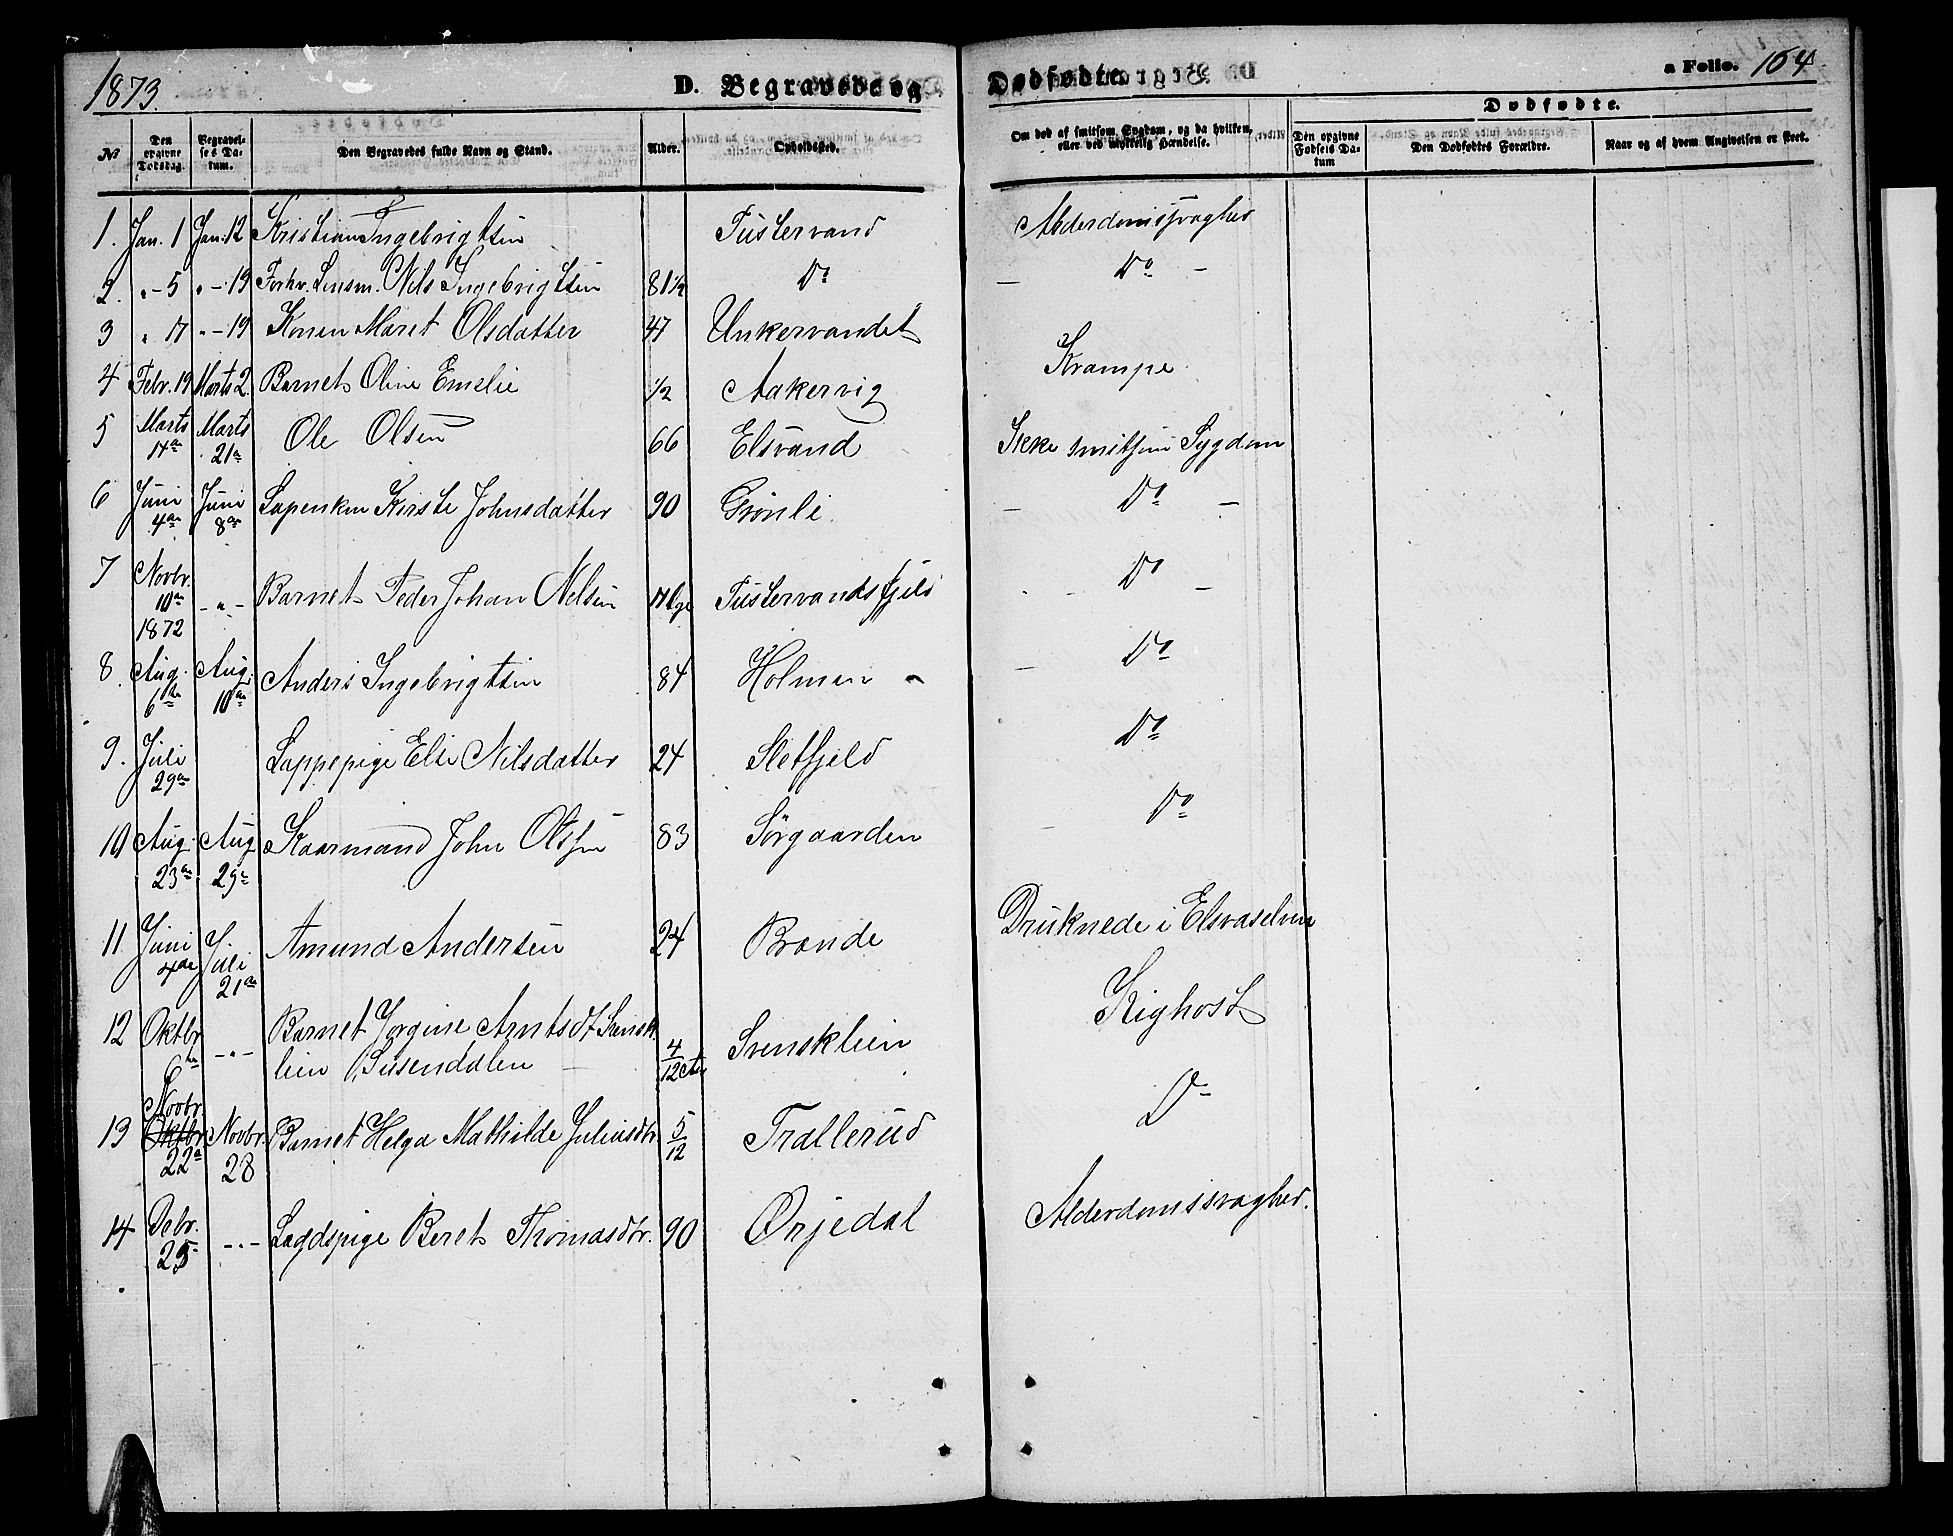 1873.
D. Begravede og
Dødfødte.
a Folio. 104
No
Den opgivne Dødsdag.
Begravelses Datum.
Den Begravedes fulde Navn og Stand.
Alder.
Opholdssted.
Om død af smitsom Sygdom, og da hvilken, eller ved ulykkelig Hændelse.
Dødfødte.
Den opgivne Fødsels Datum
Den Dødfødtes Forældre.
Naar og af hvem Angivelsen er skeet.
1. Jan. 1 Jan. 12 Kristian Ingebrigtsen Tustervand Alderdomssvaghed
2. " - 5 " - 19 Forhv. Lensm. Nils Ingebrigtsen 81 1/2 Do — Do —
3 " 17 " - 19 Konen Maret Olsdatter 47 Unkervandet
4 Febr. 19 Marts 2. Barnet Oline Emelie 1/2 Aakervig Krampe
5 Marts 14de Marts 21de Ole Olsen 66 Elsvand Ikke smitsom Sygdom
6 Juni 4de Juni 8de Kirste Johnsdatter 90 Grønli — Do —
7 Novbr. 10de 1872 - " - Barnet Peder Johan Nelsen Tustervandsfjeld - Do -
8. Aug. 6te Aug. 10de Anders Ingebrigtsen 84 Holmen — Do
9. Juli 29de Lappepige Else Nilsdatter 24 Sletfjeld Do
10 Aug. 23de Aug 29de Kaarmand John Olssen 83 Sørgaarden Do
11. Juni 4de Juli 21de Amund Andersen 24 Brænde Druknede i Elsvaselven
12 Oktbr 6te - " - Barnet Jørgine Arntsdt Svensk
lien Susendalen 4/12 Svensklien Kighost
13 Novbr. Oktbr 22de Novbr. 28 Barnet Helga Mathilde Juliusdtr. 5/12 Trallerud Do
14 Debr. 25 - " - Lægdspige Beret Thomasdtr. 90 Ørjedal Alderdomssvaghed.